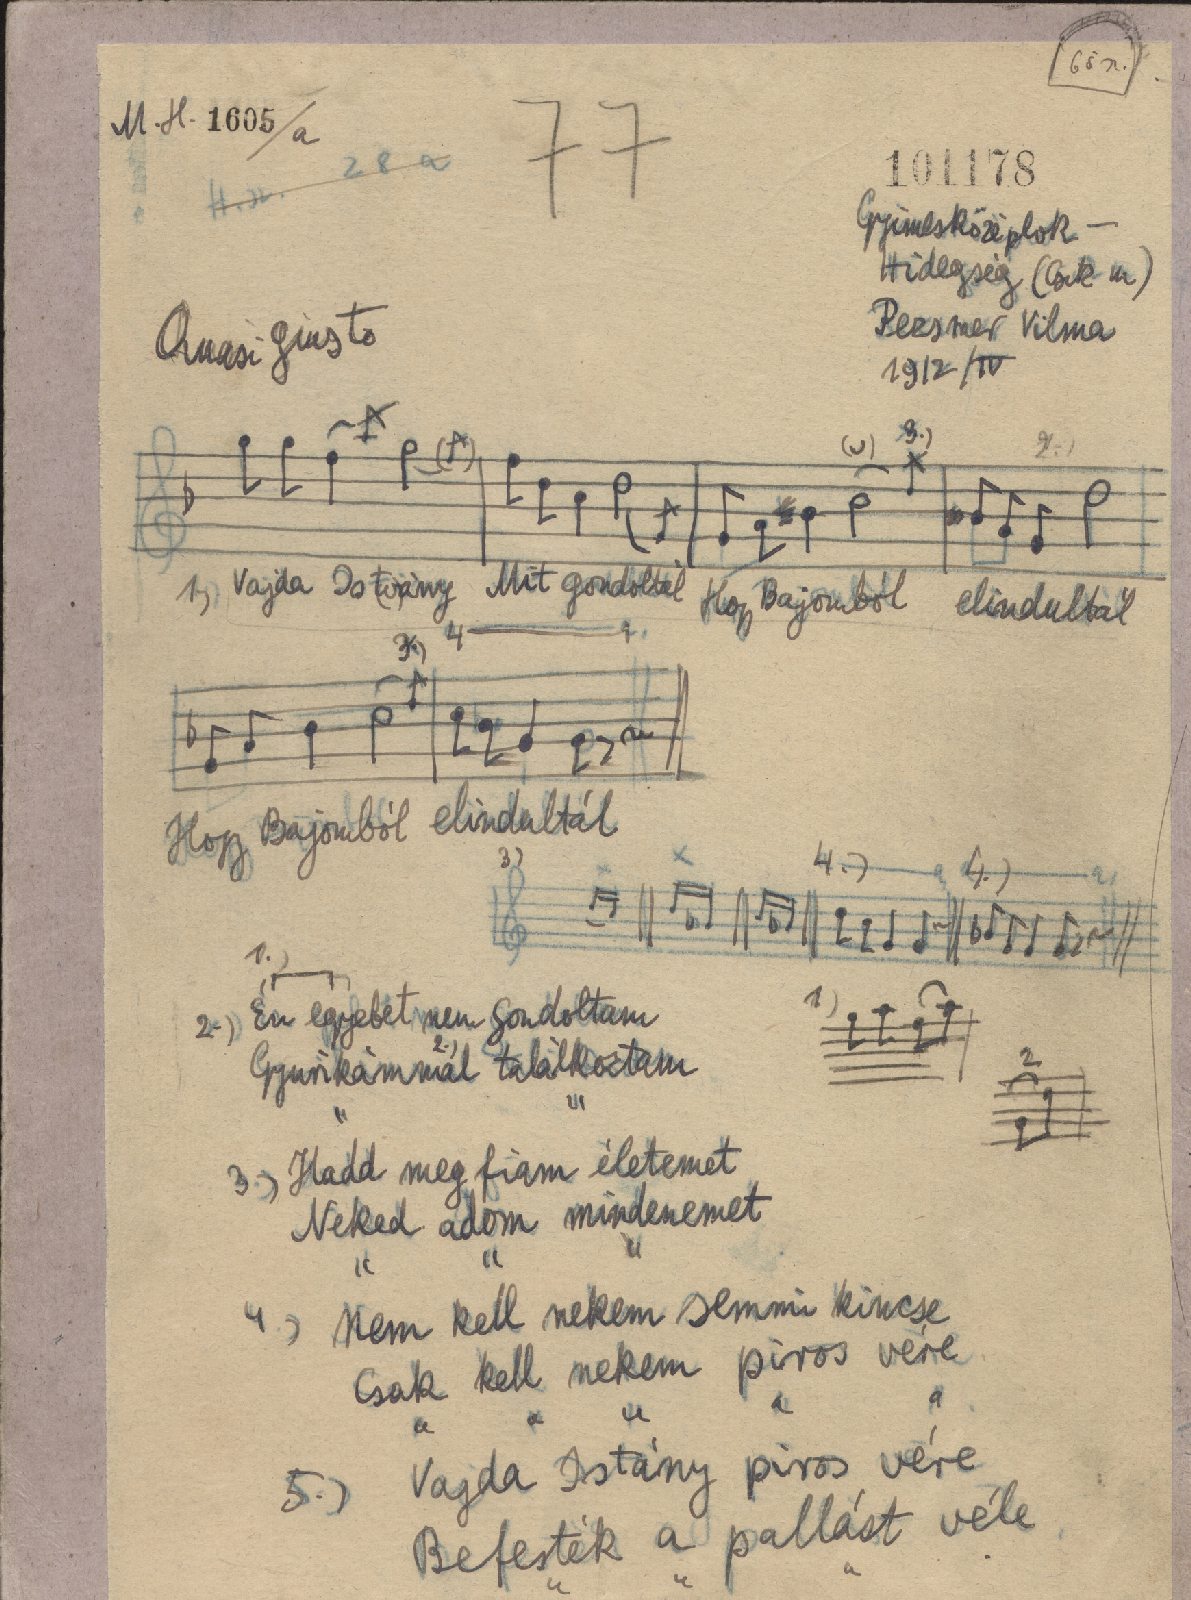 65 n.
M. H. 1605/a
77
H. n. 28 a
101178
Gyimesközéplok —
Hidegség (Csík m)
Pezsmer Vilma
1912/IV
Quasi giusto
(u) 3.) 2.)
1.) Vajda Ist(v)ány Mit gondoltál Hop Bajomból elindultál
3.) 4
Hop Bajomból elindultál
3) 4.) 4.)
1.)
2.) Én egyebet nem gondoltam
1)
2.)
Gyurikámmal találkoztam
" "
2
3.) Hadd meg fiam életemet
Neked adom mindenemet
" " "
4.) Nem kell nekem semmi kincse
Csak kell nekem piros vére
" " " " "
5.) Vajda Istány piros vére
Befesték a pallást véle
" " "